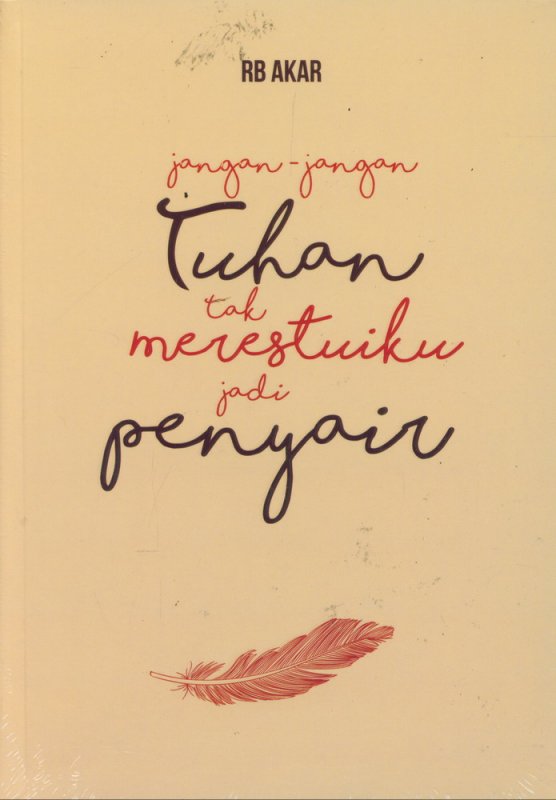 RB AKAR
jangan-jangan
Tuhan
tak
merestuiku
jadi
penyair